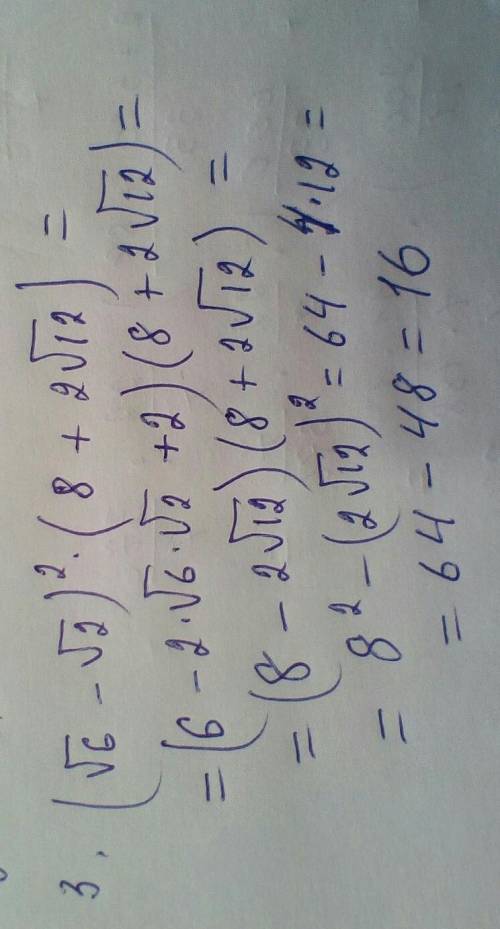 3. (√6 - √2)² · (8 + 2√12) =
= (6 - 2·√6·√2 + 2)(8 + 2√12) =
= (8 - 2√12)(8 + 2√12) =
= 8² - (2√12)² = 64 - 4·12 =
= 64 - 48 = 16